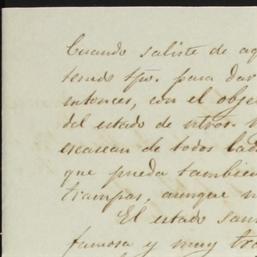 Cuando saliste de aq
tenido tpo. para dar
entonces, con el obje
del estado de ntros. n
escasean de todos lad
que pueda tambien
trampas, aunque n
El estado san
famosa y muy tra